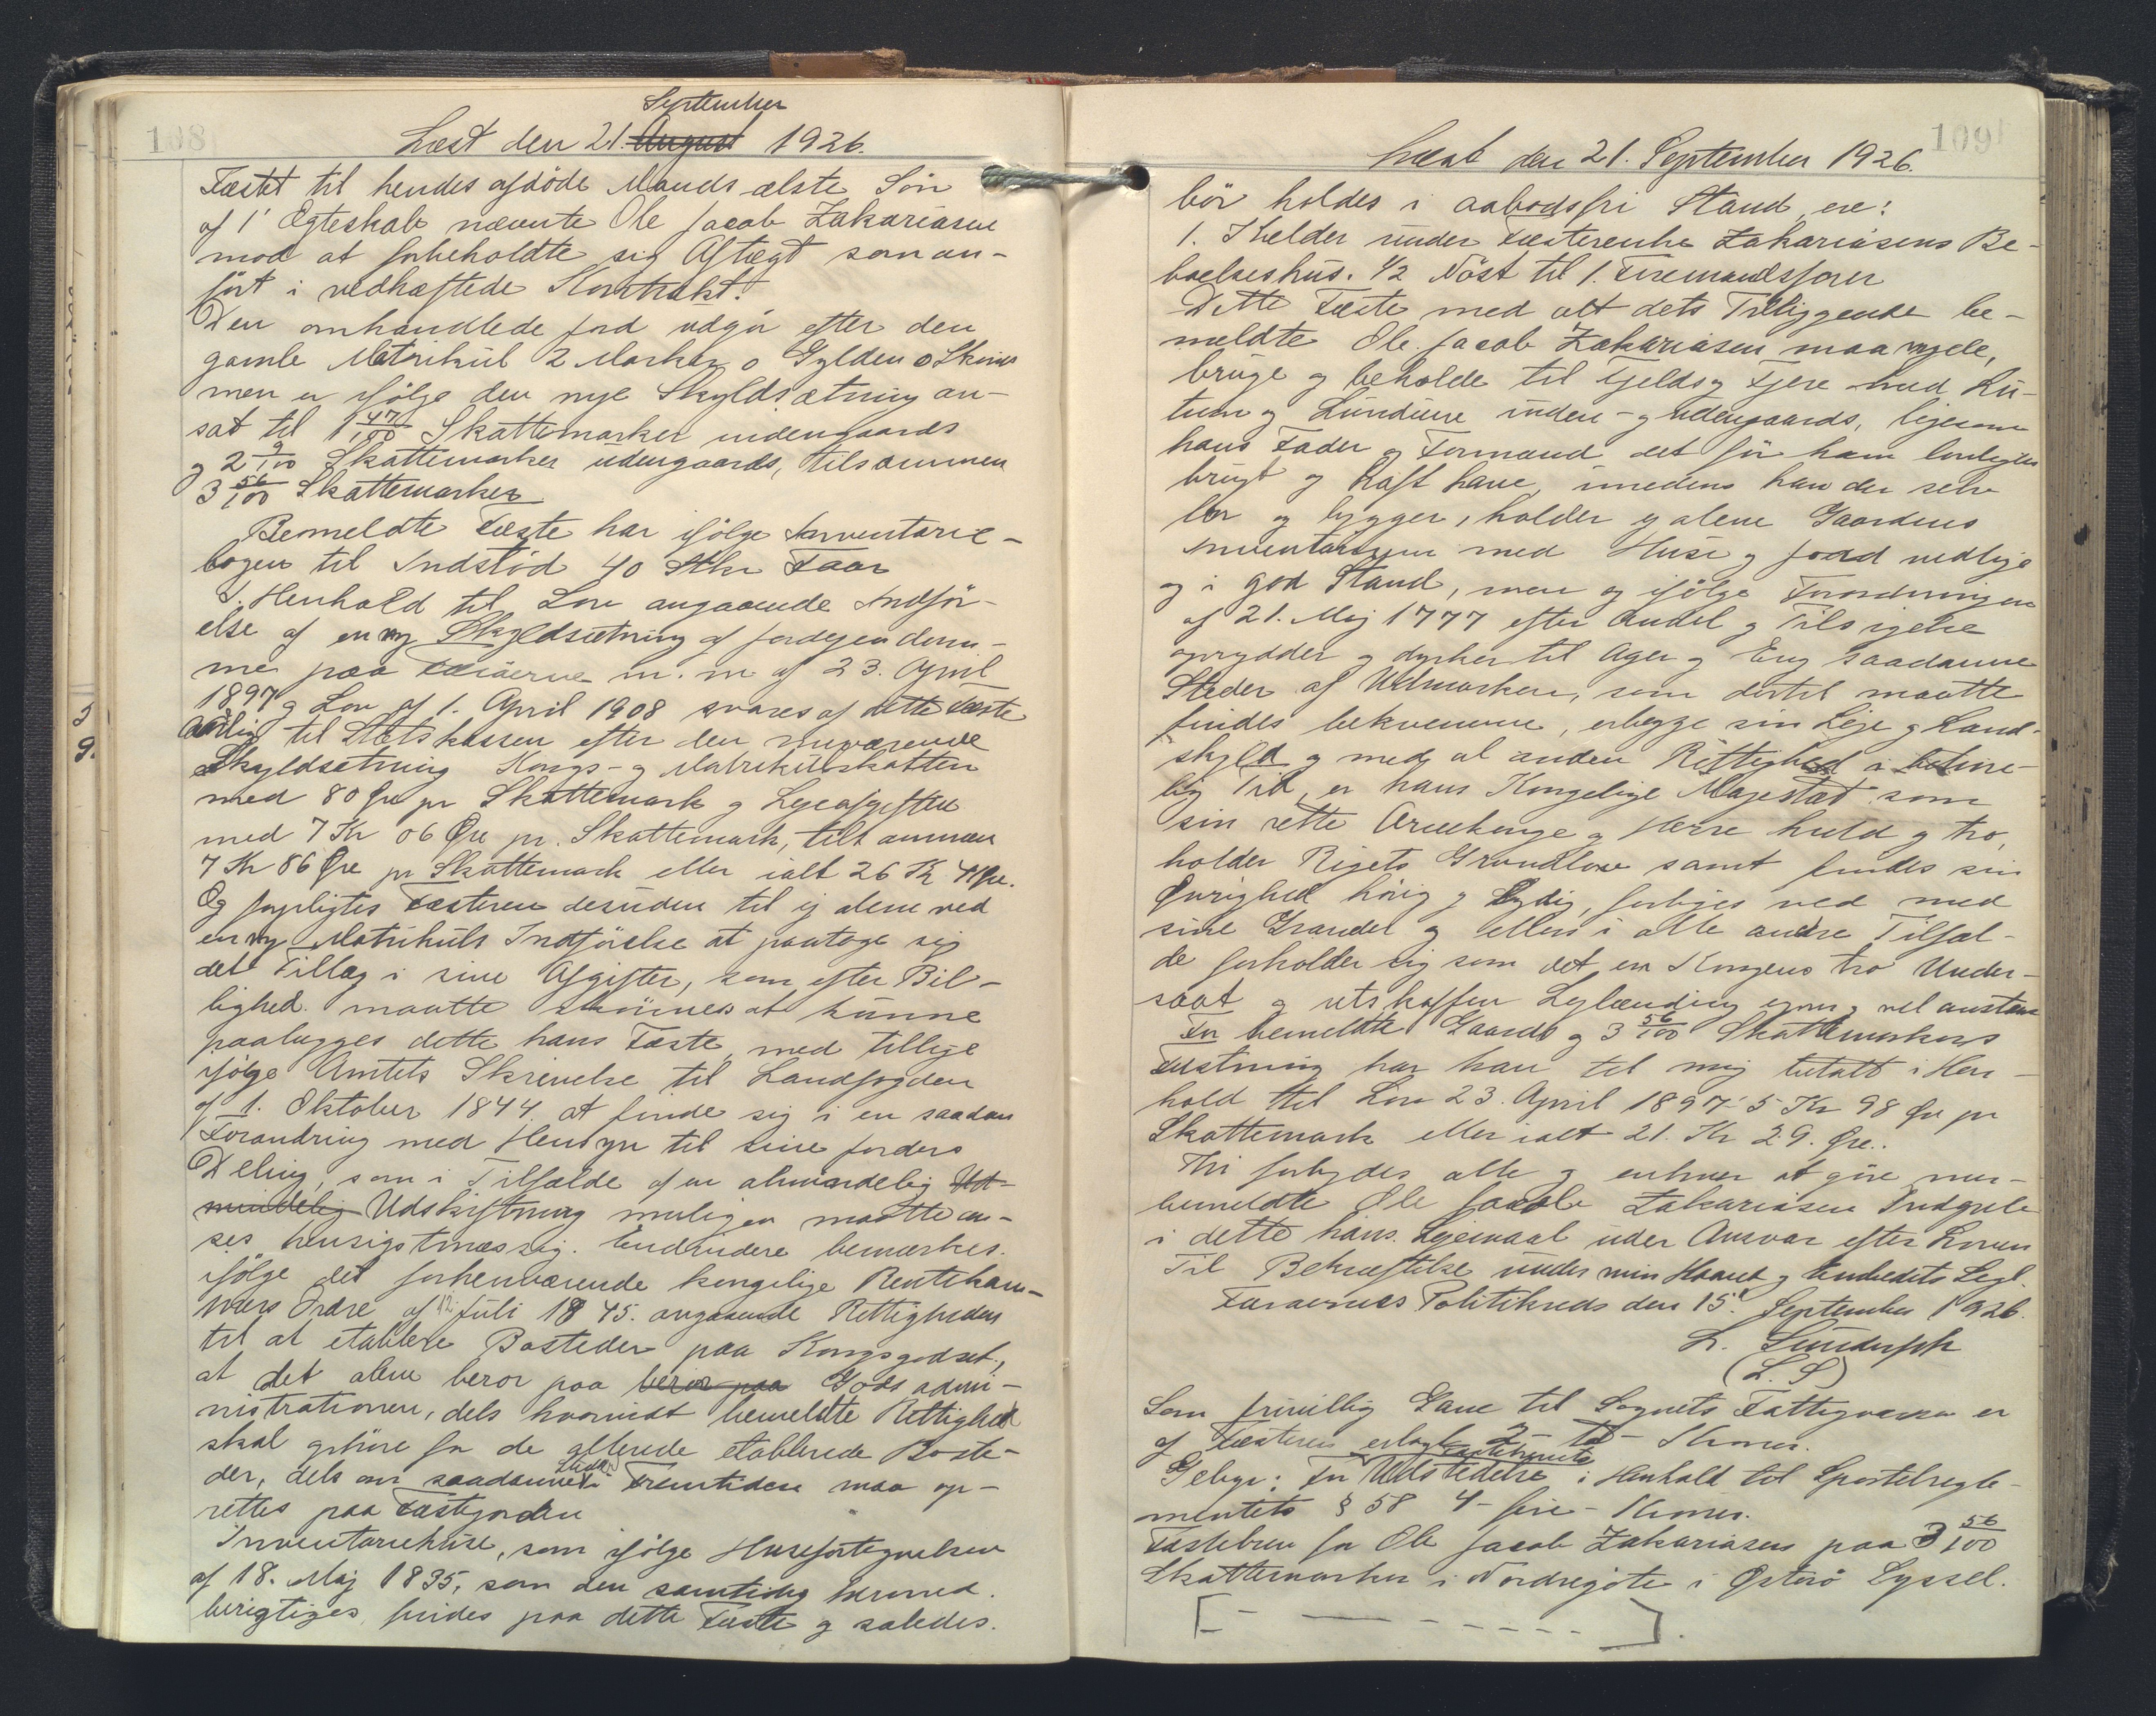 108
September
Læst den 21. August 1926.
Fæstet til hendes afdöde Mands ælste Sön
af 1' Ægteskab nævnte Ole Jacob Zakariasen
mod at forbeholdte sig Aftægt som an-
fört i vedhæftede Kontrakt.
Den omhandlede Jord udgör efter den
gamle Matrikul 2 Marker 0 Gylden 0 Skind
men er ifölge den nye Skyldsætning an-
sat til 1 47/100 Skattemarker indengaards
og 2 9/100 Skattemarker udengaards, tilsammen
3 56/100 Skattemarker
Bemeldte Fæste har ifölge Inventarie-
bogen til Indstöd 40 Stkr Faar
I Henhold til Lov angaaende Indför-
else af en ny Skyldsætning af Jordejendom-
me paa Færöerne m. m af 23. April
1897 og Lov af 1. April 1908 svares af dette Fæste
aarlig til Statskassen efter den nuværende
Skyldsetning Kongs- og Matrikulskatten
med 80 Øre pr Skattemark og Lejeafgiften
med 7 Kr 06 Øre pr. Skattemark, tilsammen
7 Kr 86 Øre pr Skattemark eller ialt 26 Kr Øre.
Og forpligtes Fæsteren desuden til ej alene ved
en ny Matrikuls Indförelse at paatage sig
det Tillæg i sine Afgifter, som efter Bil-
lighed maatte skönnes at kunne
paalægges dette hans Fæste, med tillige
ifölge Amtets Skrivelse til Landfogden
af 1. Oktober 1844 at finde sig i en saadan
Forandring med Hensyn til sine Jorders
Deling, som i Tilfælde af en almindelig Ud-
mindelig Udskiftning muligen maatte an-
ses hensigtmæssig. Endvidere bemærkes
ifölge det forhenværende kongelige Rentekam-
mers Ordre af 12 Juli 1845 angaaende Rettigheden
til at etablere Bosteder paa Kongsgodset,
at det alene beror paa beror paa Godsadmi-
nistrationen, dels hvorvidt bemeldte Rettighed
skal gehöre for de allerede etablerede Boste-
der, dels om saadanne i Fremtiden maa op-
rettes paa Fæstejorden
Inventariehuse, som ifölge Husefortegnelsen
af 18. Maj 1835, som den samtidig hermed
berigtiges, findes paa dette Fæste og saledes
109
Læst den 21. September 1926.
bör holdes i aabodsfri Stand, ere:
1. Kjelder under Fæsterenke Zakariasens Be-
boelseshus. 1/2 Nöst til 1. Firemandsfarer
Dette Fæste med alt dets Tilliggende be-
meldte Ole Jacob Zakariasen maa nyde,
bruge og beholde til Fjelds og Fjere med Lu-
tum og Lunduum inden- og udengaards, ligesom
hans Fader og Formand det för ham lovligen
brugt og haft have, imedens han der selv
bor og bygger, holder ej alene Gaardens
Inventarium med Huse og Jord vedlige
og i god Stand, men og ifölge Forordningen
af 21. Maj 1777 efter Andel og Tilsigelse
oprydder og dyrker til Ager og Eng saadanne
Steder af Udmarken, som dertil maatte
findes bekvemme, erlegge sin Leje og Land-
skyld og med al anden Rettighed i betime-
lig Tid, er hans Kongelige Majestæt som
sin rette Arvekonge og Herre huld og tro,
holder Rigets Grundlove samt findes sin
Øvrighed hörig og lydig, forliges vel med
sine Grander og ellers i alle andre Tilfæl-
de forholder sig som det en Kongens tro Under-
saat og retskaffen Lejlænding egner og vel anstaar
For bemeldte Gaards og 3 56/100 Skattemarkers
Fæstning har han til mig betalt i Hen-
hold til Lov 23. April 1897 5 Kr 98 Øre pr
Skattemark eller ialt 21. Kr 29. Øre..
Thi forbydes alle og enhver at göre mer-
bemeldte Ole Jacob Zakariasen Indgreb
i dette hans Lejemaal under Ansvar efter Loven
Til Bekræftelse under min Haand og Embedets Segl.
Færøernes Politikreds den 15. September 1926.
L. Sundorph
(L. S)
Som frivillig Gave til Sognets Fattigvæsen er
af Fæsteren erlagt 2 - to - Kroner.
Fæstebrevets
Gebyr: For Udstedelse i Henhold til Sportelregle-
mentets § 58 4 - fire - Kroner.
Fæstebrev for Ole Jacob Zakariasen paa 3 56/100
Skattemarker i Nordregöte i Østerö Syssel.